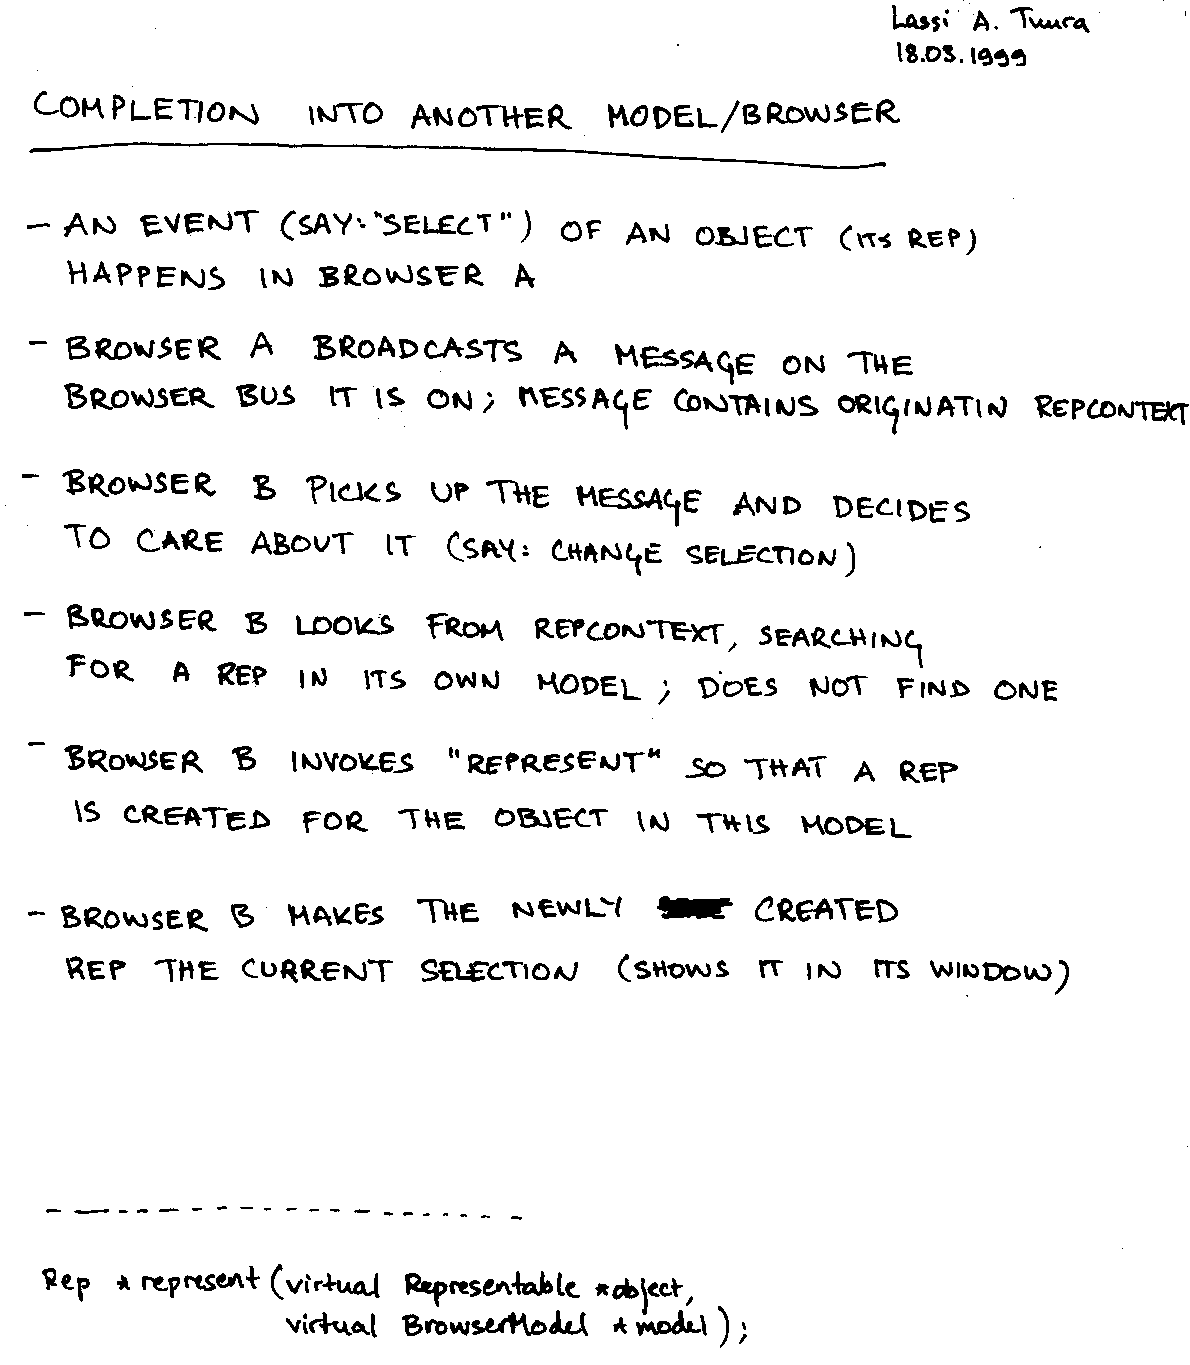 Lassi A. Tuura
18.03.1999
COMPLETION INTO ANOTHER MODEL/BROWSER
- AN EVENT (SAY: "SELECT") OF AN OBJECT (ITS REP)
HAPPENS IN BROWSER A
- BROWSER A BROADCASTS A MESSAGE ON THE
BROWSER BUS IT IS ON; MESSAGE CONTAINS ORIGINATIN REPCONTEXT
- BROWSER B PICKS UP THE MESSAGE AND DECIDES
TO CARE ABOUT IT (SAY: CHANGE SELECTION)
- BROWSER B LOOKS FROM REPCONTEXT, SEARCHING
FOR A REP IN ITS OWN MODEL; DOES NOT FIND ONE
- BROWSER B INVOKES "REPRESENT" SO THAT A REP
IS CREATED FOR THE OBJECT IN THIS MODEL
- BROWSER B MAKES THE NEWLY CREATED
REP THE CURRENT SELECTION (SHOWS IT IN ITS WINDOW)
Rep *represent (virtual Representable *object,
virtual BrowserModel *model);